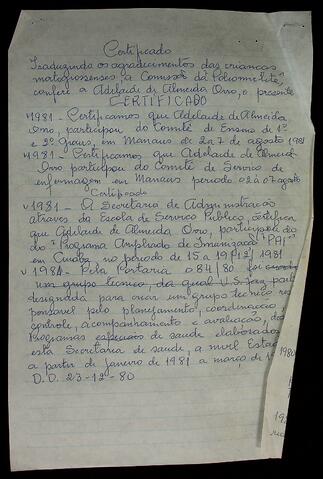 Certificado
Traduzindo os agradecimentos das crianças
matogrossenses, a Comissão da Poliomielite
confere a Adelaide de Almeida Orro, o presente
CERTIFICADO
1981 - Certificamos que Adelaide de Almeida
Orro, participou do Comitê de Ensino de 1º
e 2º Graus, em Manaus de 2 a 7 de agosto 1981
1981 - Certificamos que Adelaide de Almeida
Orro participou do Comitê de Serviço de
enfermagem em Manaus período 02 à 07 agosto
Certificado
1981 - A Secretaria de Administração
através da Escola de Serviço Público, certifica
que Adelaide de Almeida Orro, participou do
do "Programa Ampliado de Imunização "PAI"
em Cuiabá no período de 15 a 19/12/1981
1981 - Pela Portaria 084/80 foi
um grupo técnico, da qual V.S. faz parte
designada para criar um grupo técnico res
ponsável pelo planejamento, coordenação
controle, acompanhamento e avaliação, dos
Programas especiais de saúde elaborados
esta Secretaria de saúde, a nível Estad
a partir de janeiro de 1981 a março de
D.O. 23-12-80